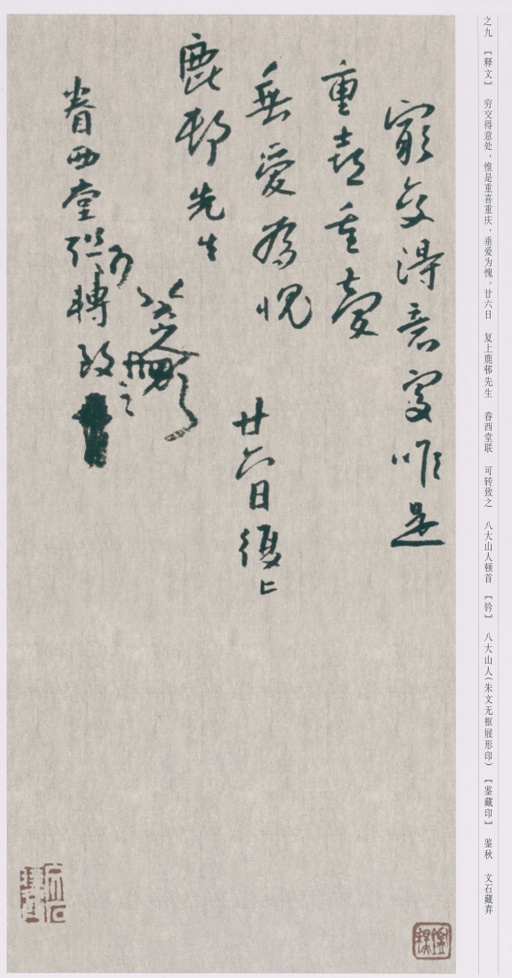 之九 【释文】 穷交得意处，惟是重喜重庆，垂爱为愧。廿六日 复上鹿邨先生 眷西堂联 可转致之 八大山人顿首 【钤】 八大山人（朱文无框屐形印） 【鉴藏印】 鉴秋 文石藏弆
窮交得意處唯是
重喜重慶
垂愛為愧
廿六日復上
鹿邨先生
八大山人頓首
眷西堂联可轉致之